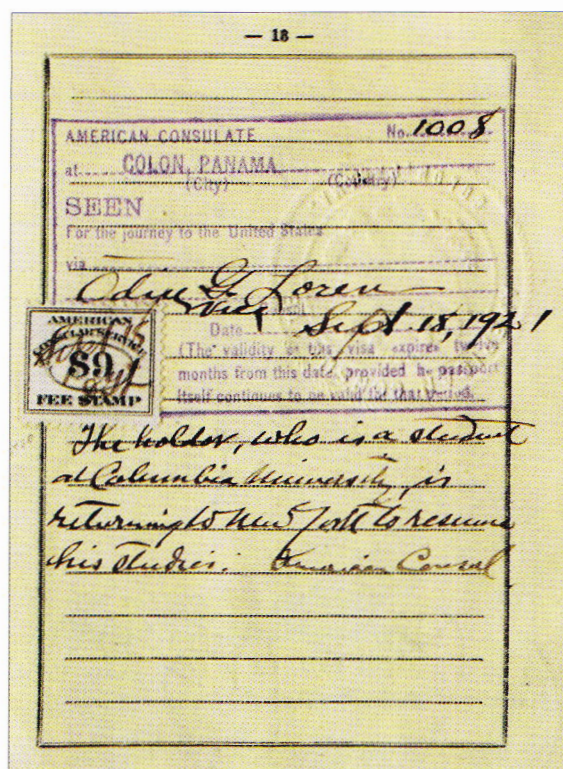 — 18 —
AMERICAN CONSULATE No. 1008
at COLON, PANAMA.
(City) (Country)
SEEN
For the journey to the United States
via
Odin G. Loren
Vice
Date Sept 18, 1921
(The validity of this visa expires twelve
months from this date, provided the passport
itself continues to be valid for that period.
AMERICAN
CONSULAR SERVICE
$9
FEE STAMP
The holder, who is a student
at Columbia University, is
returning to New York to resume
his studies. American Consul